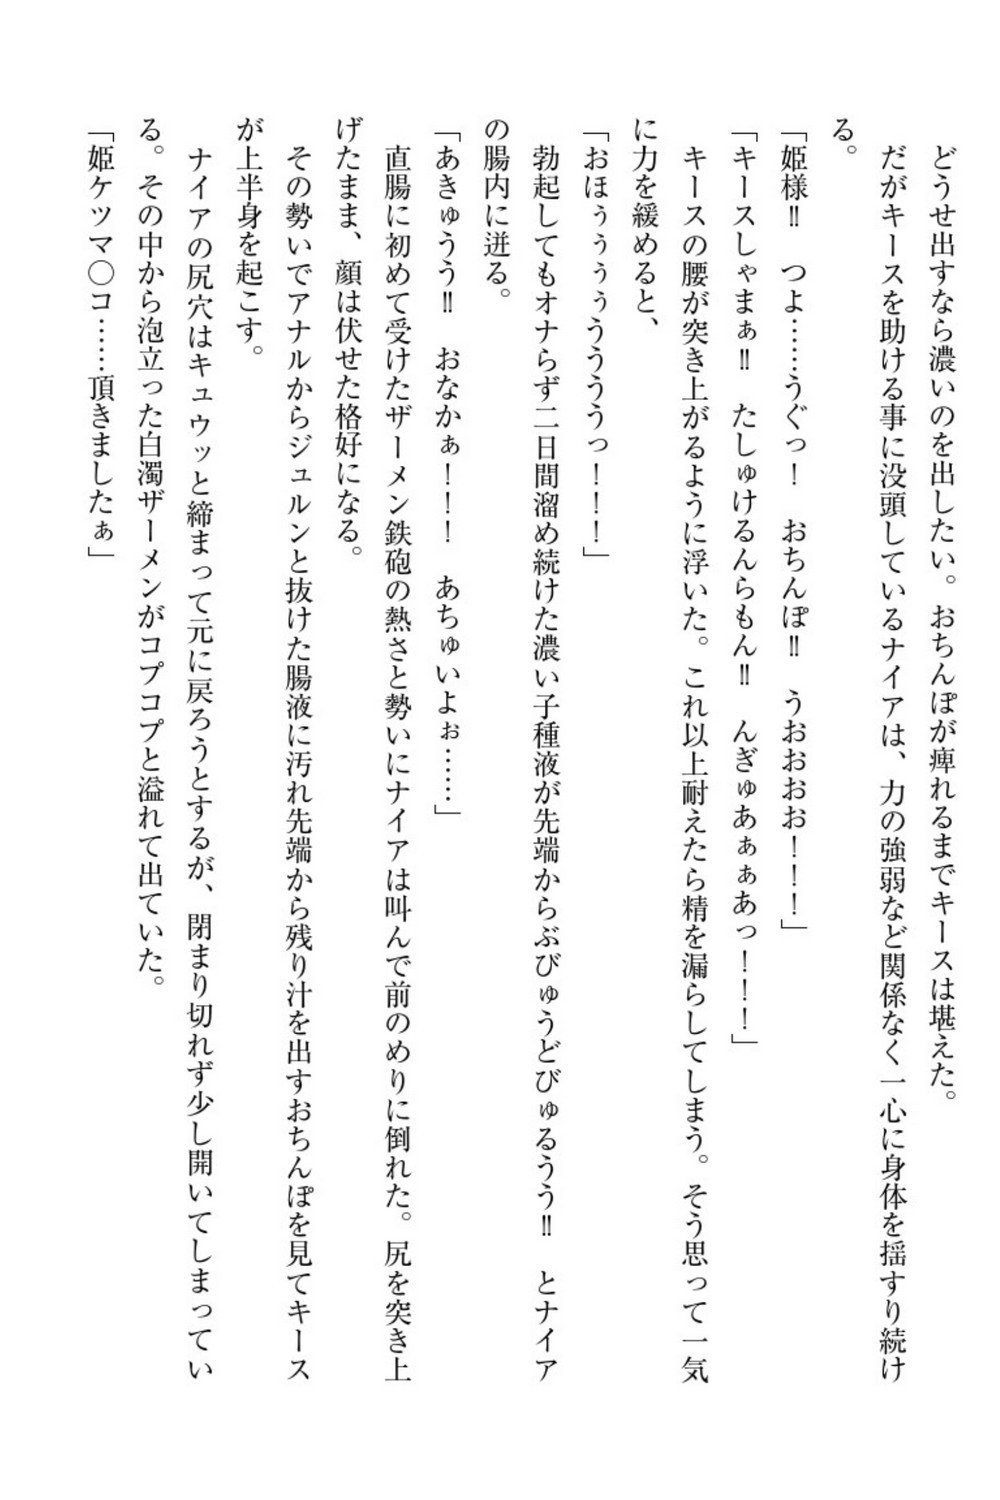 どうせ出すなら濃いのを出したい。おちんぽが痺れるまでキースは堪えた。
だがキースを助ける事に没頭しているナイアは、力の強弱など関係なく一心に身体を揺すり続け
る。
「姫様‼　つよ……うぐっ！　おちんぽ‼　うおおおお！！！」
「キースしゃまぁ‼　たしゅけるんらもん‼　んぎゅあぁぁあっ！！！」
キースの腰が突き上がるように浮いた。これ以上耐えたら精を漏らしてしまう。そう思って一気
に力を緩めると、
「おほぅぅぅぅうううっ！！！」
勃起してもオナらず二日間溜め続けた濃い子種液が先端からぶびゅうどびゅるうう‼　とナイア
の腸内に迸る。
「あきゅうう‼　おなかぁ！！！　あちゅいよぉ……」
直腸に初めて受けたザーメン鉄砲の熱さと勢いにナイアは叫んで前のめりに倒れた。尻を突き上
げたまま、顔は伏せた格好になる。
その勢いでアナルからジュルンと抜けた腸液に汚れ先端から残り汁を出すおちんぽを見てキース
が上半身を起こす。
ナイアの尻穴はキュウッと締まって元に戻ろうとするが、閉まり切れず少し開いてしまってい
る。その中から泡立った白濁ザーメンがコプコプと溢れて出ていた。
「姫ケツマ〇コ……頂きましたぁ」